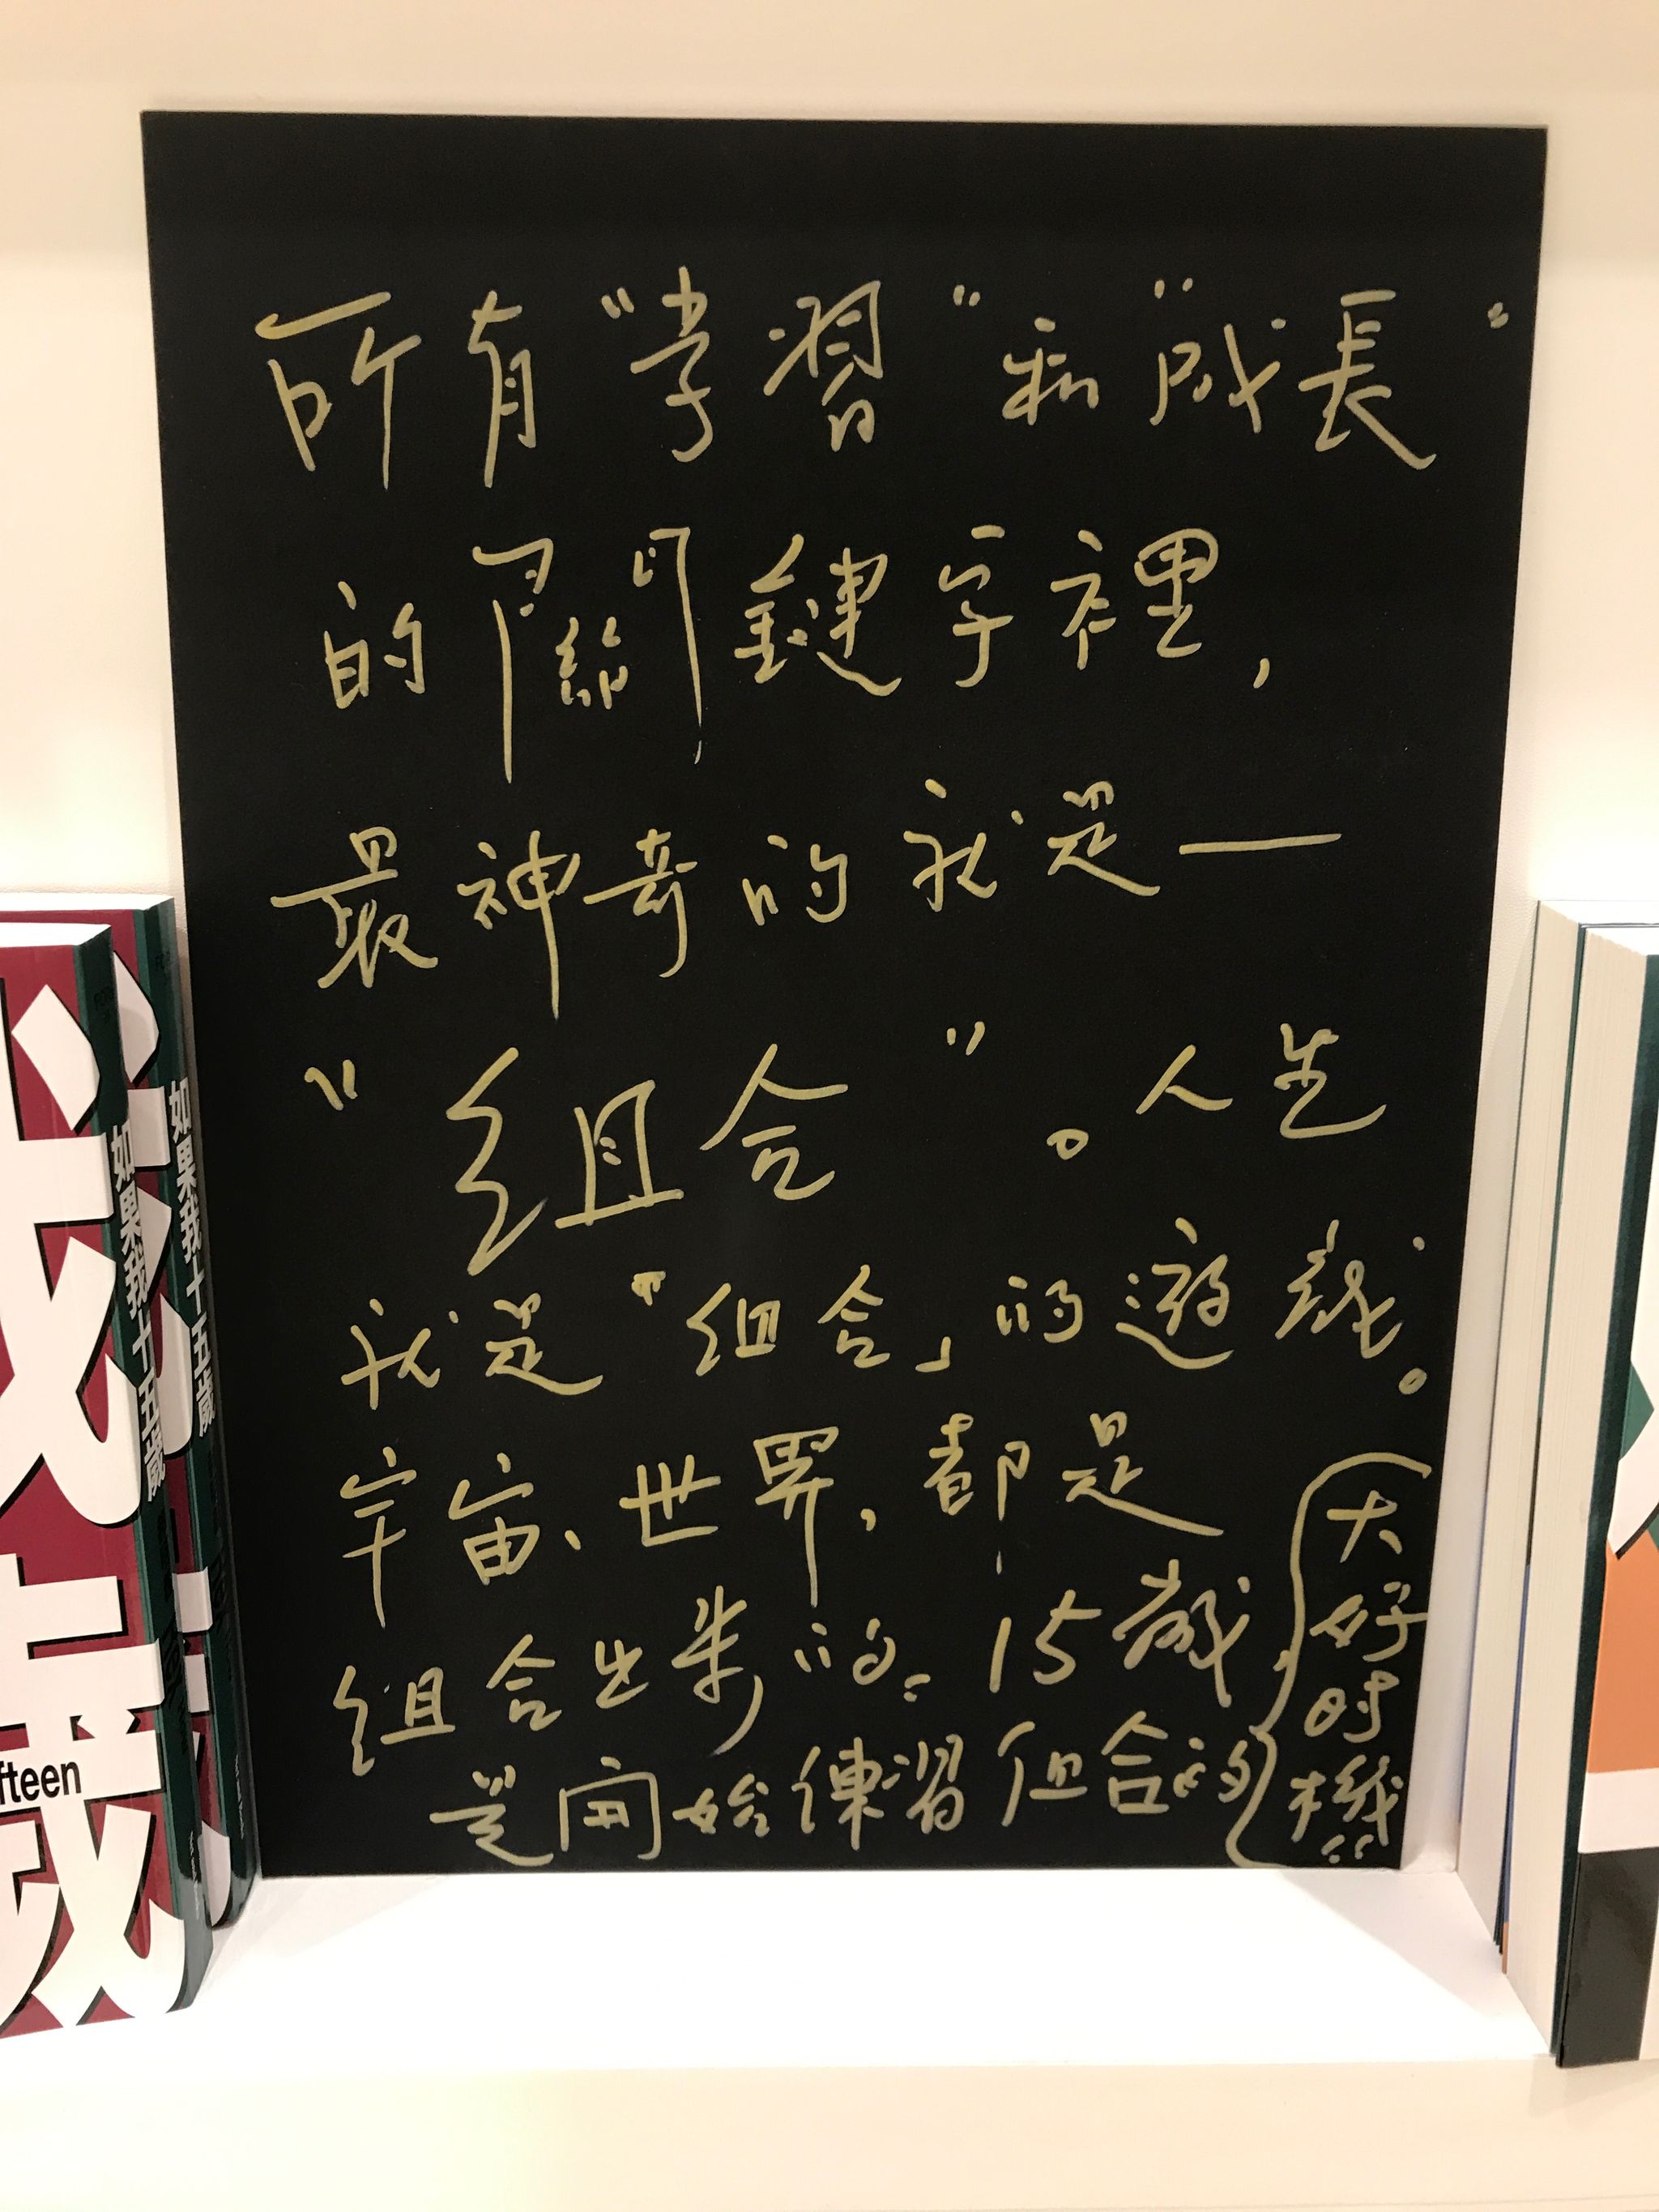 所有"學習"和"成長"
的關鍵字裡，
最神奇的就是—
"組合"。人生
就是"組合」的遊戲。
宇宙、世界，都是
組合出來的。15歲，
是開始練習組合的
大好時機
如果我十五歲
如果我十五歲
fteen